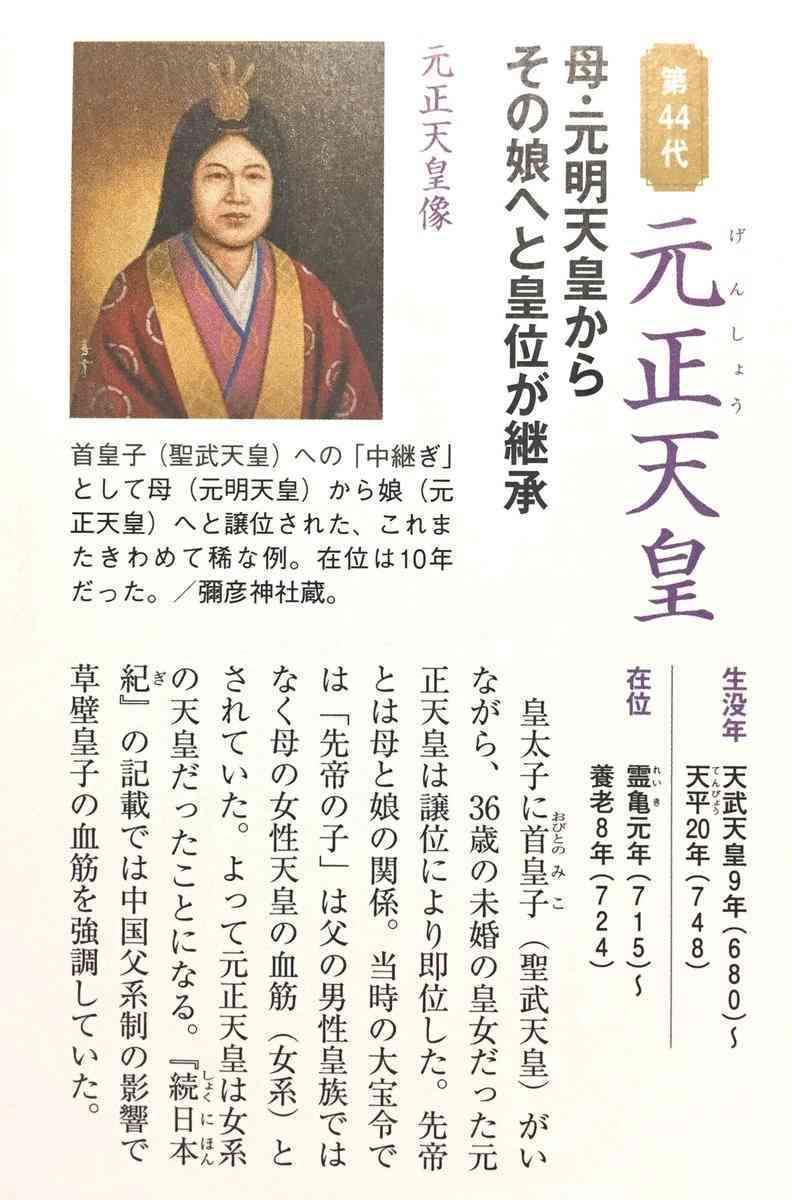 第44代
元正天皇
げんしょう
母・元明天皇から
その娘へと皇位が継承
元正天皇像
首皇子（聖武天皇）への「中継ぎ」
として母（元明天皇）から娘（元
正天皇）へと譲位された、これま
たきわめて稀な例。在位は10年
だった。／彌彦神社蔵。
生没年 天武天皇9年（680）～
天平20年（748）
てんぴょう
在位 霊亀元年（715）～
れいき
養老8年（724）
皇太子に首皇子（聖武天皇）がい
おびとのみこ
ながら、36歳の未婚の皇女だった元
正天皇は譲位により即位した。先帝
とは母と娘の関係。当時の大宝令で
は「先帝の子」は父の男性皇族では
なく母の女性天皇の血筋（女系）と
されていた。よって元正天皇は女系
の天皇だったことになる。『続日本
しょくにほん
紀』の記載では中国父系制の影響で
ぎ
草壁皇子の血筋を強調していた。